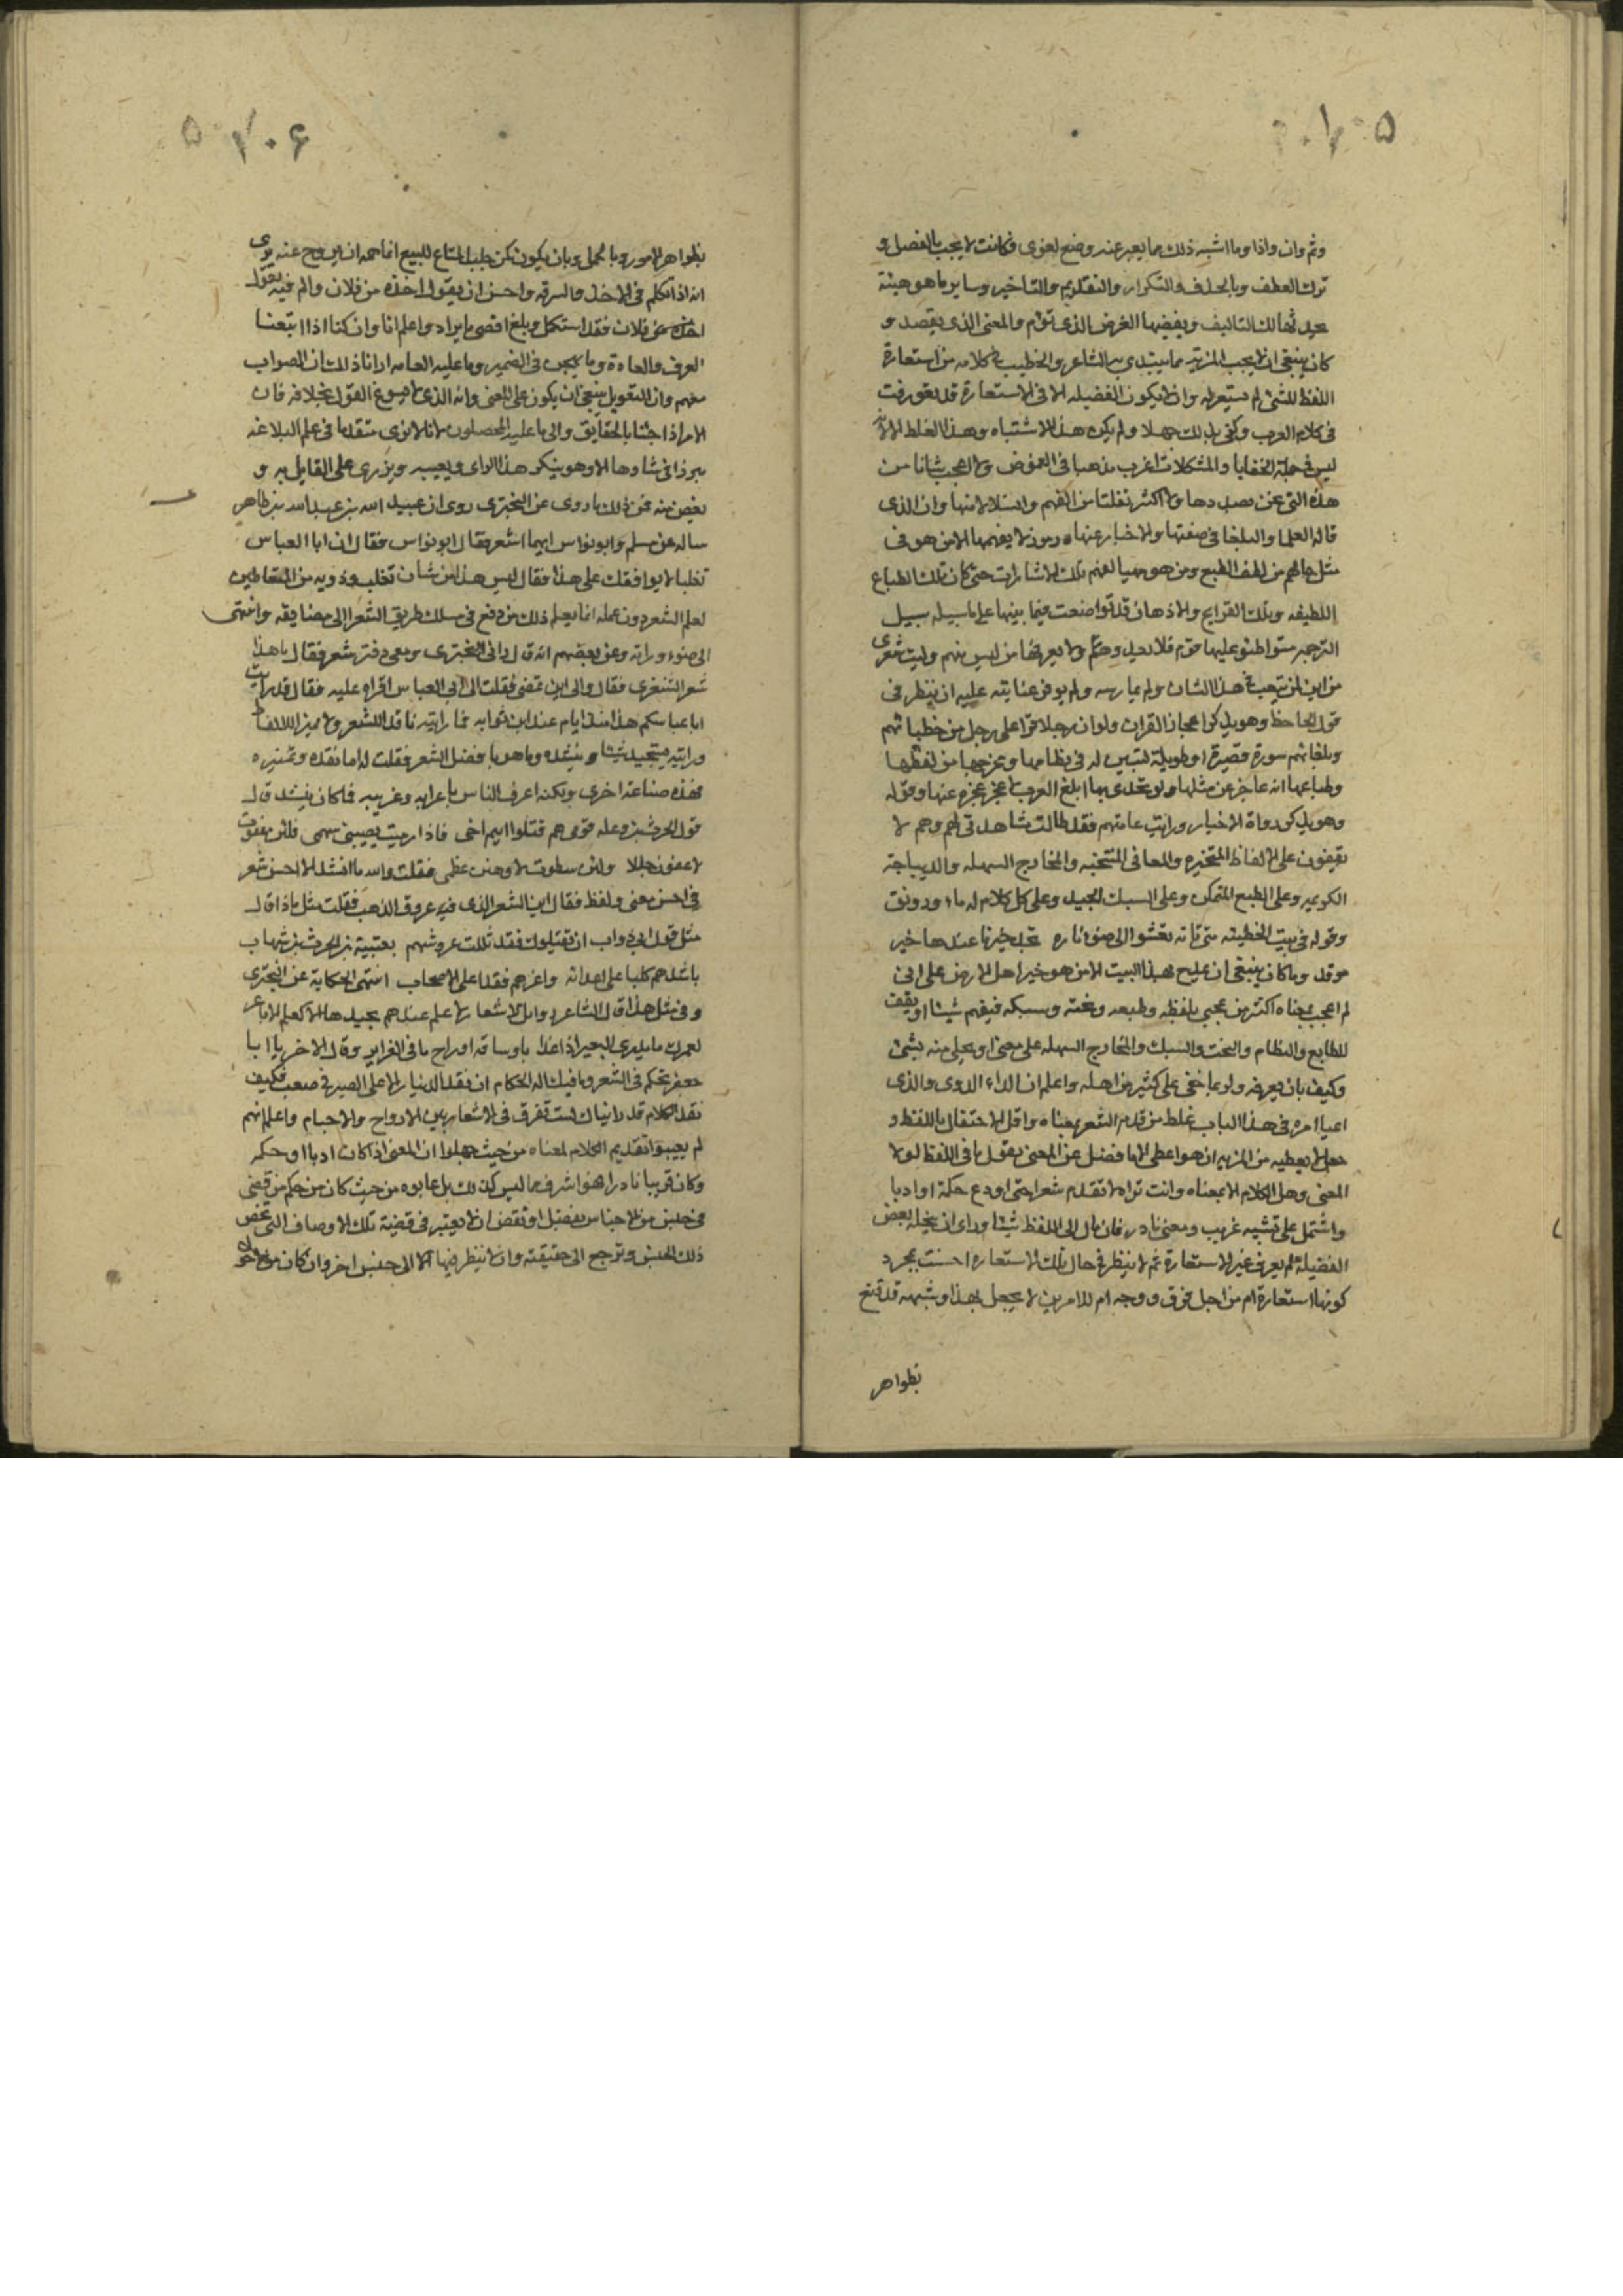 ۱۰۵
وثم وان واذا وما اشبه ذلك مما يعبر عنه وضع لغوى فكانت لا يجب بالفصل و
ترك العطف وبالحذف والتكرار والتقديم والتاخير وساير ما هو هيئة
يحدثها لك التاليف ويفيضها الغرض الذى تؤم والمعنى الذى يقصد و
كان ينبغى ان لا يجب المزية مما يبتدى به الشاعر والخطيب فى كلامه من استعارة
اللفظ للشئ لم يستعر له وان لا يكون الفضيله الا فى الاستعارة قد تعورفت
فى كلام العرب وكفى بذلك جهلا ولم يكن هذا الاشتباه وهذا الغلط الا لانه
ليس فى جملة الخفايا والمشكلات اغرب مذهبا فى الغموض ولا اعجب شانا من
هذه التى نحن بصددها ولا اكثر تفلتا من الفهم وانسلالا منها وان الذى
قاله العلما والبلغا فى صفتها والاخبار عنها رموز لا يفهمها الا من هو فى
مثل حالهم من لطف الطبع ومن هو مهيا لفهم تلك الاشارات حتى كان تلك الطباع
اللطيفه وتلك القرايح والاذهان قد تواضعت فيما بينها على ما سبيله سبيل
الترجمه متواطئو عليها قوم فلا يعدوهم ولا يعرفها من ليس منهم وليت شعرى
من اين لمن يتعب فى هذا الشان ولم يمارسه ولم يوفر عنايته عليه ان ينظر فى
قول الجاحظ وهو يذكر اعجاز القران ولو ان رجلا قرا على رجل من خطبائهم
وبلغائهم سورة قصيرة او طويلة لتبين له فى نظامها ومخرجها من لفظها
وطباعها انه عاجز عن مثلها ولو تحدى بها ابلغ العرب لاظهر عجزه عنها وقوله
وهو يذكر رواة الاخبار ورايت عامتهم فقد طالت مشاهدتى لهم وهم لا
يقفون على الالفاظ المتخيره والمعانى المنتخبه والمخارج السهله والديباجة
الكريمه وعلى الطبع المتمكن وعلى السبك الجيد وعلى كل كلام له ماء ورونق
وقوله فى بيت الحطيئه متى تاته تعشوا الى ضوء ناره تجد خير نار عندها خير
موقد وما كان ينبغى ان يمدح بهذا البيت الا من هو خير اهل الارض على انى
لم اعجب بمعناه اكثر من عجبى بلفظه وطبعه ونحته وسبكه فيفهم شيئا او يقف
للطابع والنظام والنحت والسبك والمخارج السهله على معنى او يحلى منه بشئ
وكيف بان يعرفه ولربما خفى على كثير من اهله واعلم ان الداء الدوى والذى
اعيا امره فى هذا الباب غلط من قدم الشعر بمعناه واقل الاحتفال باللفظ و
جعل لا يعطيه من المزيه ان هو اعطى الا ما فضل عن المعنى يقول ما فى اللفظ لولا
المعنى وهل الكلام الا بمعناه وانت تراه لا تقدم شعرا حتى اودع حكمة او ادبا
واشتمل على تشبيه غريب ومعنى نادر فان مال الى اللفظ شيئا وراى ان ينحله بعض
الفضيلة لم يعرف غير الاستعارة ثم لا ينظر فى حال تلك الاستعاره احسنت بمجرد
كونها استعارة ام من اجل فرق ووجه ام للامرين لا يحفل بهذا وشبهه قد قنع
بظواهر
۱۰۶
بظواهر الامور وبالمجمل وبان يكون كمن جلب المتاع للبيع انما همه ان يروج عنه يرى
انه اذا تكلم فى الاخذ والسرقه واحسن ان يقول اخذه من فلان والم فيه بقول
فلان فقد استكمل وبلغ اقصى ما يراد واعلم انا وان كنا اذا اتبعنا
العرف والعادة وما يهجس فى الضمير وما عليه العامه ارانا ذلك ان الصواب
معهم وان التعويل ينبغى ان يكون على المعنى وانه الذى لا يسوغ القول بخلافه فان
الامر اذا جئنا بالحقايق والى ما عليه المحصلون لانا لا نرى متقدما فى علم البلاغه
مبرزا فى شاوها الا وهو ينكر هذا الراى ويعيبه ويزرى على القايل به و
يغض منه فمن ذلك ما روى عن البحترى روى ان عبيد الله بن عبد الله بن طاهر
ساله عن مسلم وابو نواس ايهما اشعر فقال ابو نواس فقال ان ابا العباس
ثعلبا لا يوافقك على هذا فقال ليس هذا من شان ثعلب وذويه من المتعاطين
لعلم الشعر دون عمله انما يعلم ذلك من دفع فى مسلك طريق الشعر الى مضايقه وانتهى
الى ضوء وراته وعن بعضهم انه قال رانى البحترى ومعى دفتر شعر فقال ما هذا
شعر الشنفرى فقال والى اين تمضى فقلت الى ابى العباس اقراه عليه فقال قد رايت
ابا عباسكم هذا منذ ايام عند ابن ثوابه فما رايته ناقدا للشعر ولا مميزا للالفاظ
ورايته يستجيد شيئا وينشده وما هو بافضل الشعر فقلت له اما نقده وتمييزه
فهذه صناعة اخرى ولكنه اعرف الناس باعرابه وغريبه فما كان ينشد قال
قول الحرث بن وعله قومى هم قتلوا اميم اخى فاذا رميت يصيبنى سهمى فلئن عفوت
لاعفون جللا ولئن سطوت لاوهنن عظمى فقلت والله ما انشد الا احسن شعر
فى احسن معنى ولفظ فقال اين الشعر الذى فيه عروق الذهب فقلت مثل ماذا قال
مثل قول ابى ذواب ان يقتلوك فقد ثللت عروشهم بعتيبة بن الحرث بن شهاب
باشدهم كلبا على اعدائه واعزهم فقدا على الاصحاب انتهى الحكاية عن البحترى
وفى مثل هذا قال الشاعر زوامل للاشعار لا علم عندهم بجيدها الا كعلم الاباعر
لعمرك ما يدرى البعير اذا غدا باوساقه او راح ما فى الغراير وقال الاخر يا ابا
جعفر تحكم فى الشعر وما فيك اله الحكام ان نقد الدينار الا على الصيرف صعب فكيف
نقد الكلام قد راينا ك لست تفرق فى الاشعار بين الارواح والاجسام واعلم انهم
لم يعيبوا تقديم الكلام لمعناه من حيث جهلوا ان المعنى اذا كان ادبا او حكمه
وكان غريبا نادرا فهو اشرف مما ليس كذلك بل عابوه من حيث كان من حكم من قضى
فى جنس من الاجناس بفضل او نقص ان لا يعتبر فى قضيته تلك الا وصاف التى تخص
ذلك الجنس وترجع الى حقيقته وان لا ينظر فيها الا الى جنس اخر وان كان من الاول